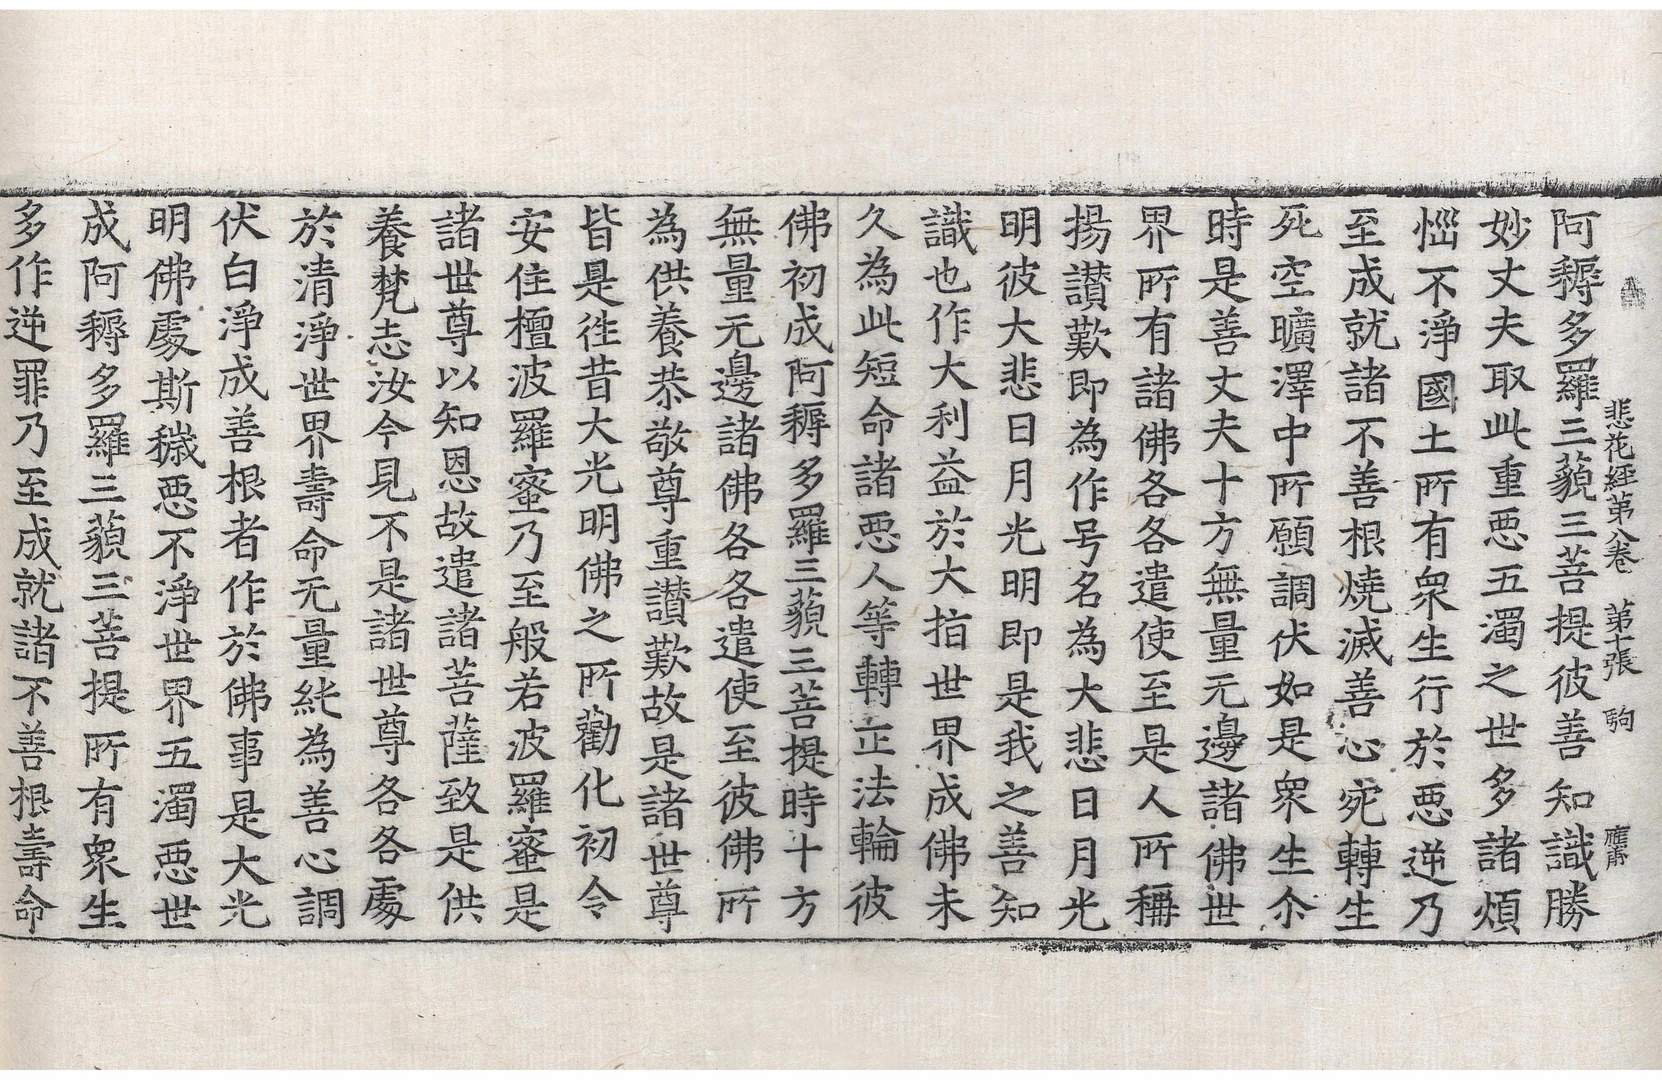 悲花経第八卷　第十張　駒　應甫
阿耨多羅三藐三菩提彼善知識勝
妙丈夫取此重惡五濁之世多諸煩
惱不淨國土所有眾生行於惡逆乃
至成就諸不善根燒滅善心宛轉生
死空曠澤中所願調伏如是眾生尒
時是善丈夫十方無量无邊諸佛世
界所有諸佛各各遣使至是人所稱
揚讚歎即為作号名為大悲日月光
明彼大悲日月光明即是我之善知
識也作大利益於大指世界成佛未
久為此短命諸惡人等轉正法輪彼
佛初成阿耨多羅三藐三菩提時十方
無量无邊諸佛各各遣使至彼佛所
為供養恭敬尊重讚歎故是諸世尊
皆是往昔大光明佛之所勸化初令
安住檀波羅蜜乃至般若波羅蜜是
諸世尊以知恩故遣諸菩薩致是供
養梵志汝今見不是諸世尊各各處
於清淨世界壽命无量純為善心調
伏白淨成善根者作於佛事是大光
明佛處斯穢惡不淨世界五濁惡世
成阿耨多羅三藐三菩提所有眾生
多作逆罪乃至成就諸不善根壽命